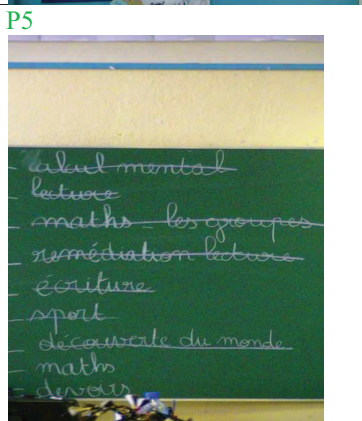 P5
- calcul mental
- lecture
- maths - les groupes
- remédiation lecture
- écriture
- sport
- découverte du monde
- maths
- devoirs